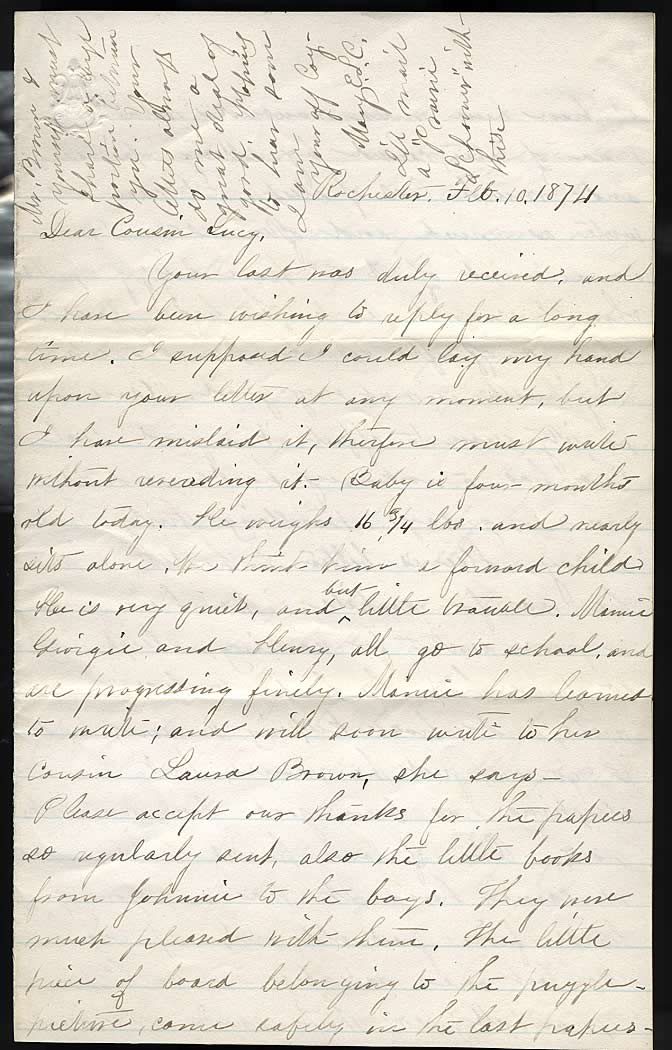 Rochester, Feb. 10. 1874
Dear Cousin Lucy,
Your last was duly received, and
I have been wishing to reply for a long
time. I supposed I could lay my hand
upon your letter at any moment, but
I have mislaid it, therefore must write
without rereading it. Baby is four months
old today. He weighs 16 3/4 lbs. and nearly
sits alone. We think him a forward child
He is very quiet, and but little trouble. Mamie
Georgie and Henry, all go to school, and
are progressing finely. Mamie has learned
to write; and will soon write to her
Cousin Laura Brown, she says—
Please accept our thanks for the papers
so regularly sent, also the little books
from Johnnie to the boys. They were
much pleased with them. The little
piece of board belonging to the puzzle-
picture, came safely in the last papers—
Mr. Brown &
yourself must
share a large
portion between
you. Your
letters always
do me a
great deal of
good. Hoping
to hear soon
I am
Your aff Coz—
Mary E. C.
I'll mail
a
with-
this